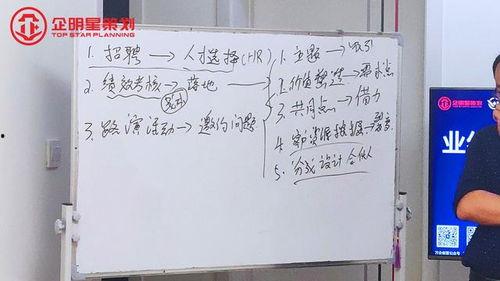 企明星策划
TOP STAR PLANNING
1. 招聘 → 人才选择(HR)
2. 绩效考核 → 落地
3. 路演活动 → 邀约问题
1. 主题 → 吸引
2. 价值塑造 → 需求点
3. 共同点 → 借力
4. 资源
5. 分钱设计 合伙人
企明星策划
业